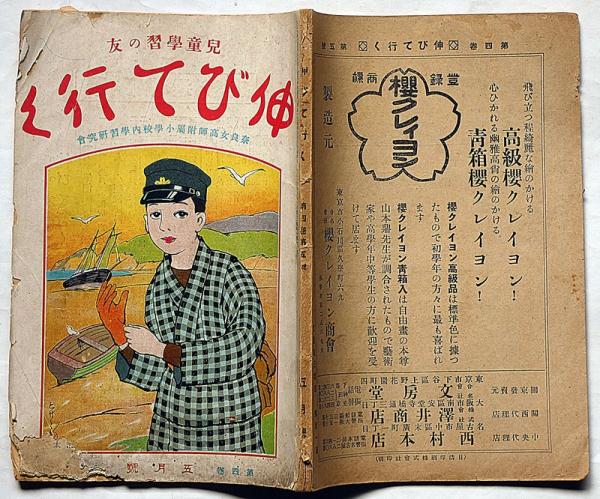 兒童學習の友
伸びて行く
奈良女高師附屬小學校内學習研究會
第四卷
五月號
第四卷
伸びて行く
第五號
登錄
商標
櫻クレイヨン
飛び立つ程綺麗な繪のかける
高級櫻クレイヨン!
心ひかれる幽雅高尙の繪のかける。
靑箱櫻クレイヨン!
櫻クレイヨン高級品は標準色に據つ
たもので初學年の方々に最も喜ばれ
ます
櫻クレイヨン靑箱入は自由畫の本尊
山本鼎先生が調合されたもので藝術
家や高學年中等學生の方に歡迎を受
けて居ます
製造元
東京市小石川區久堅町六九
櫻クレイヨン商會
關東發賣元
東京市下谷區上野花園町四
文房堂
關西代理店
大阪市南區安堂寺橋通三丁目
澤井商店
中央代理店
名古屋市中區末廣町一丁目
西村本店